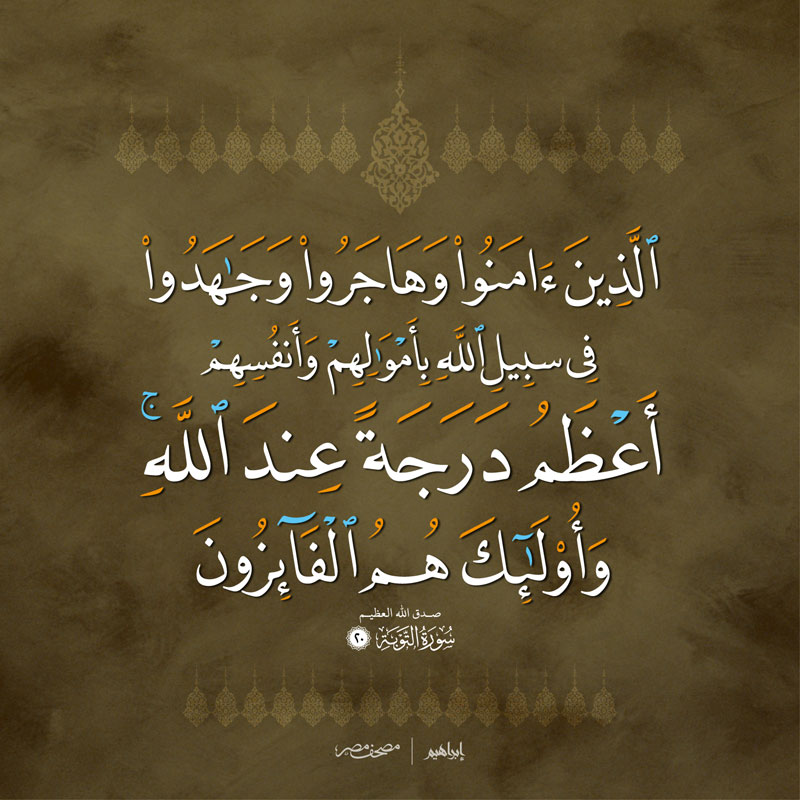 ٱلَّذِينَ ءَامَنُوا۟ وَهَاجَرُوا۟ وَجَـٰهَدُوا۟
فِى سَبِيلِ ٱللَّهِ بِأَمْوَٰلِهِمْ وَأَنفُسِهِمْ
أَعْظَمُ دَرَجَةً عِندَ ٱللَّهِ ۚ
وَأُو۟لَـٰٓئِكَ هُمُ ٱلْفَآئِزُونَ
صدق الله العظيم
سُورَةُ التَّوْبَة ٢٠
إبراهيم | مصحف مصر